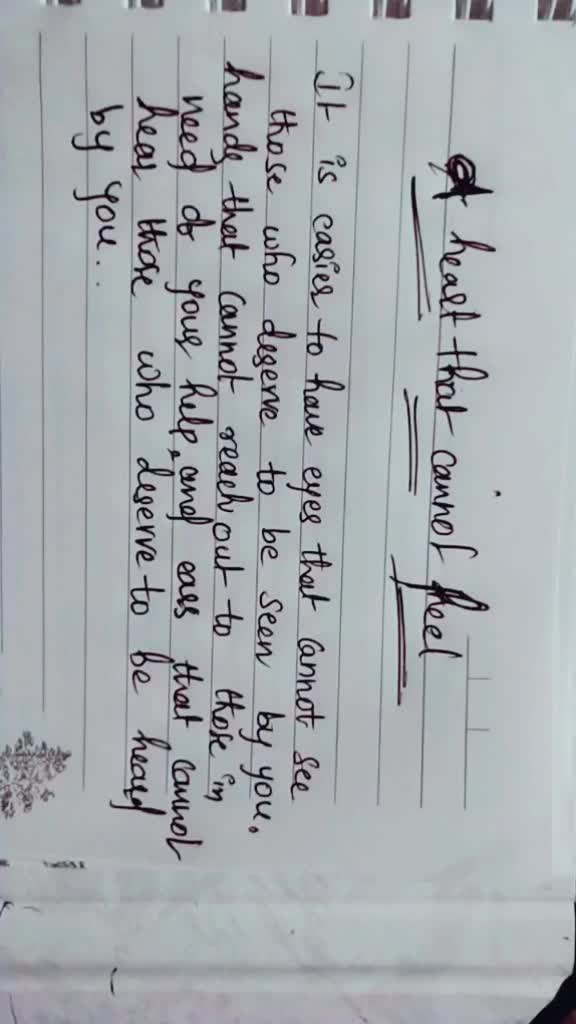 A heart that cannot feel
It is easier to have eyes that cannot see
those who deserve to be seen by you.
hands that cannot reach out to those in
need of your help, and ears that cannot
hear those who deserve to be heard
by you..